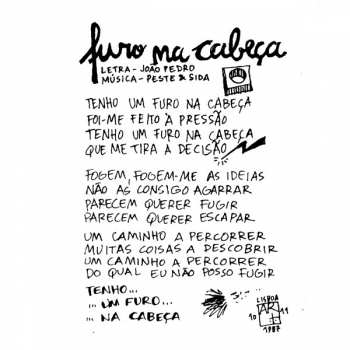 furo na cabeça
LETRA - JOÃO PEDRO
MÚSICA - PESTE & SIDA
TENHO UM FURO NA CABEÇA
FOI-ME FEITO À PRESSÃO
TENHO UM FURO NA CABEÇA
QUE ME TIRA A DECISÃO
FOGEM, FOGEM-ME AS IDEIAS
NÃO AS CONSIGO AGARRAR
PARECEM QUERER FUGIR
PARECEM QUERER ESCAPAR
UM CAMINHO A PERCORRER
MUITAS COISAS A DESCOBRIR
UM CAMINHO A PERCORRER
DO QUAL EU NÃO POSSO FUGIR
TENHO...
... UM FURO...
... NA CABEÇA
LISBOA
10 11
1987